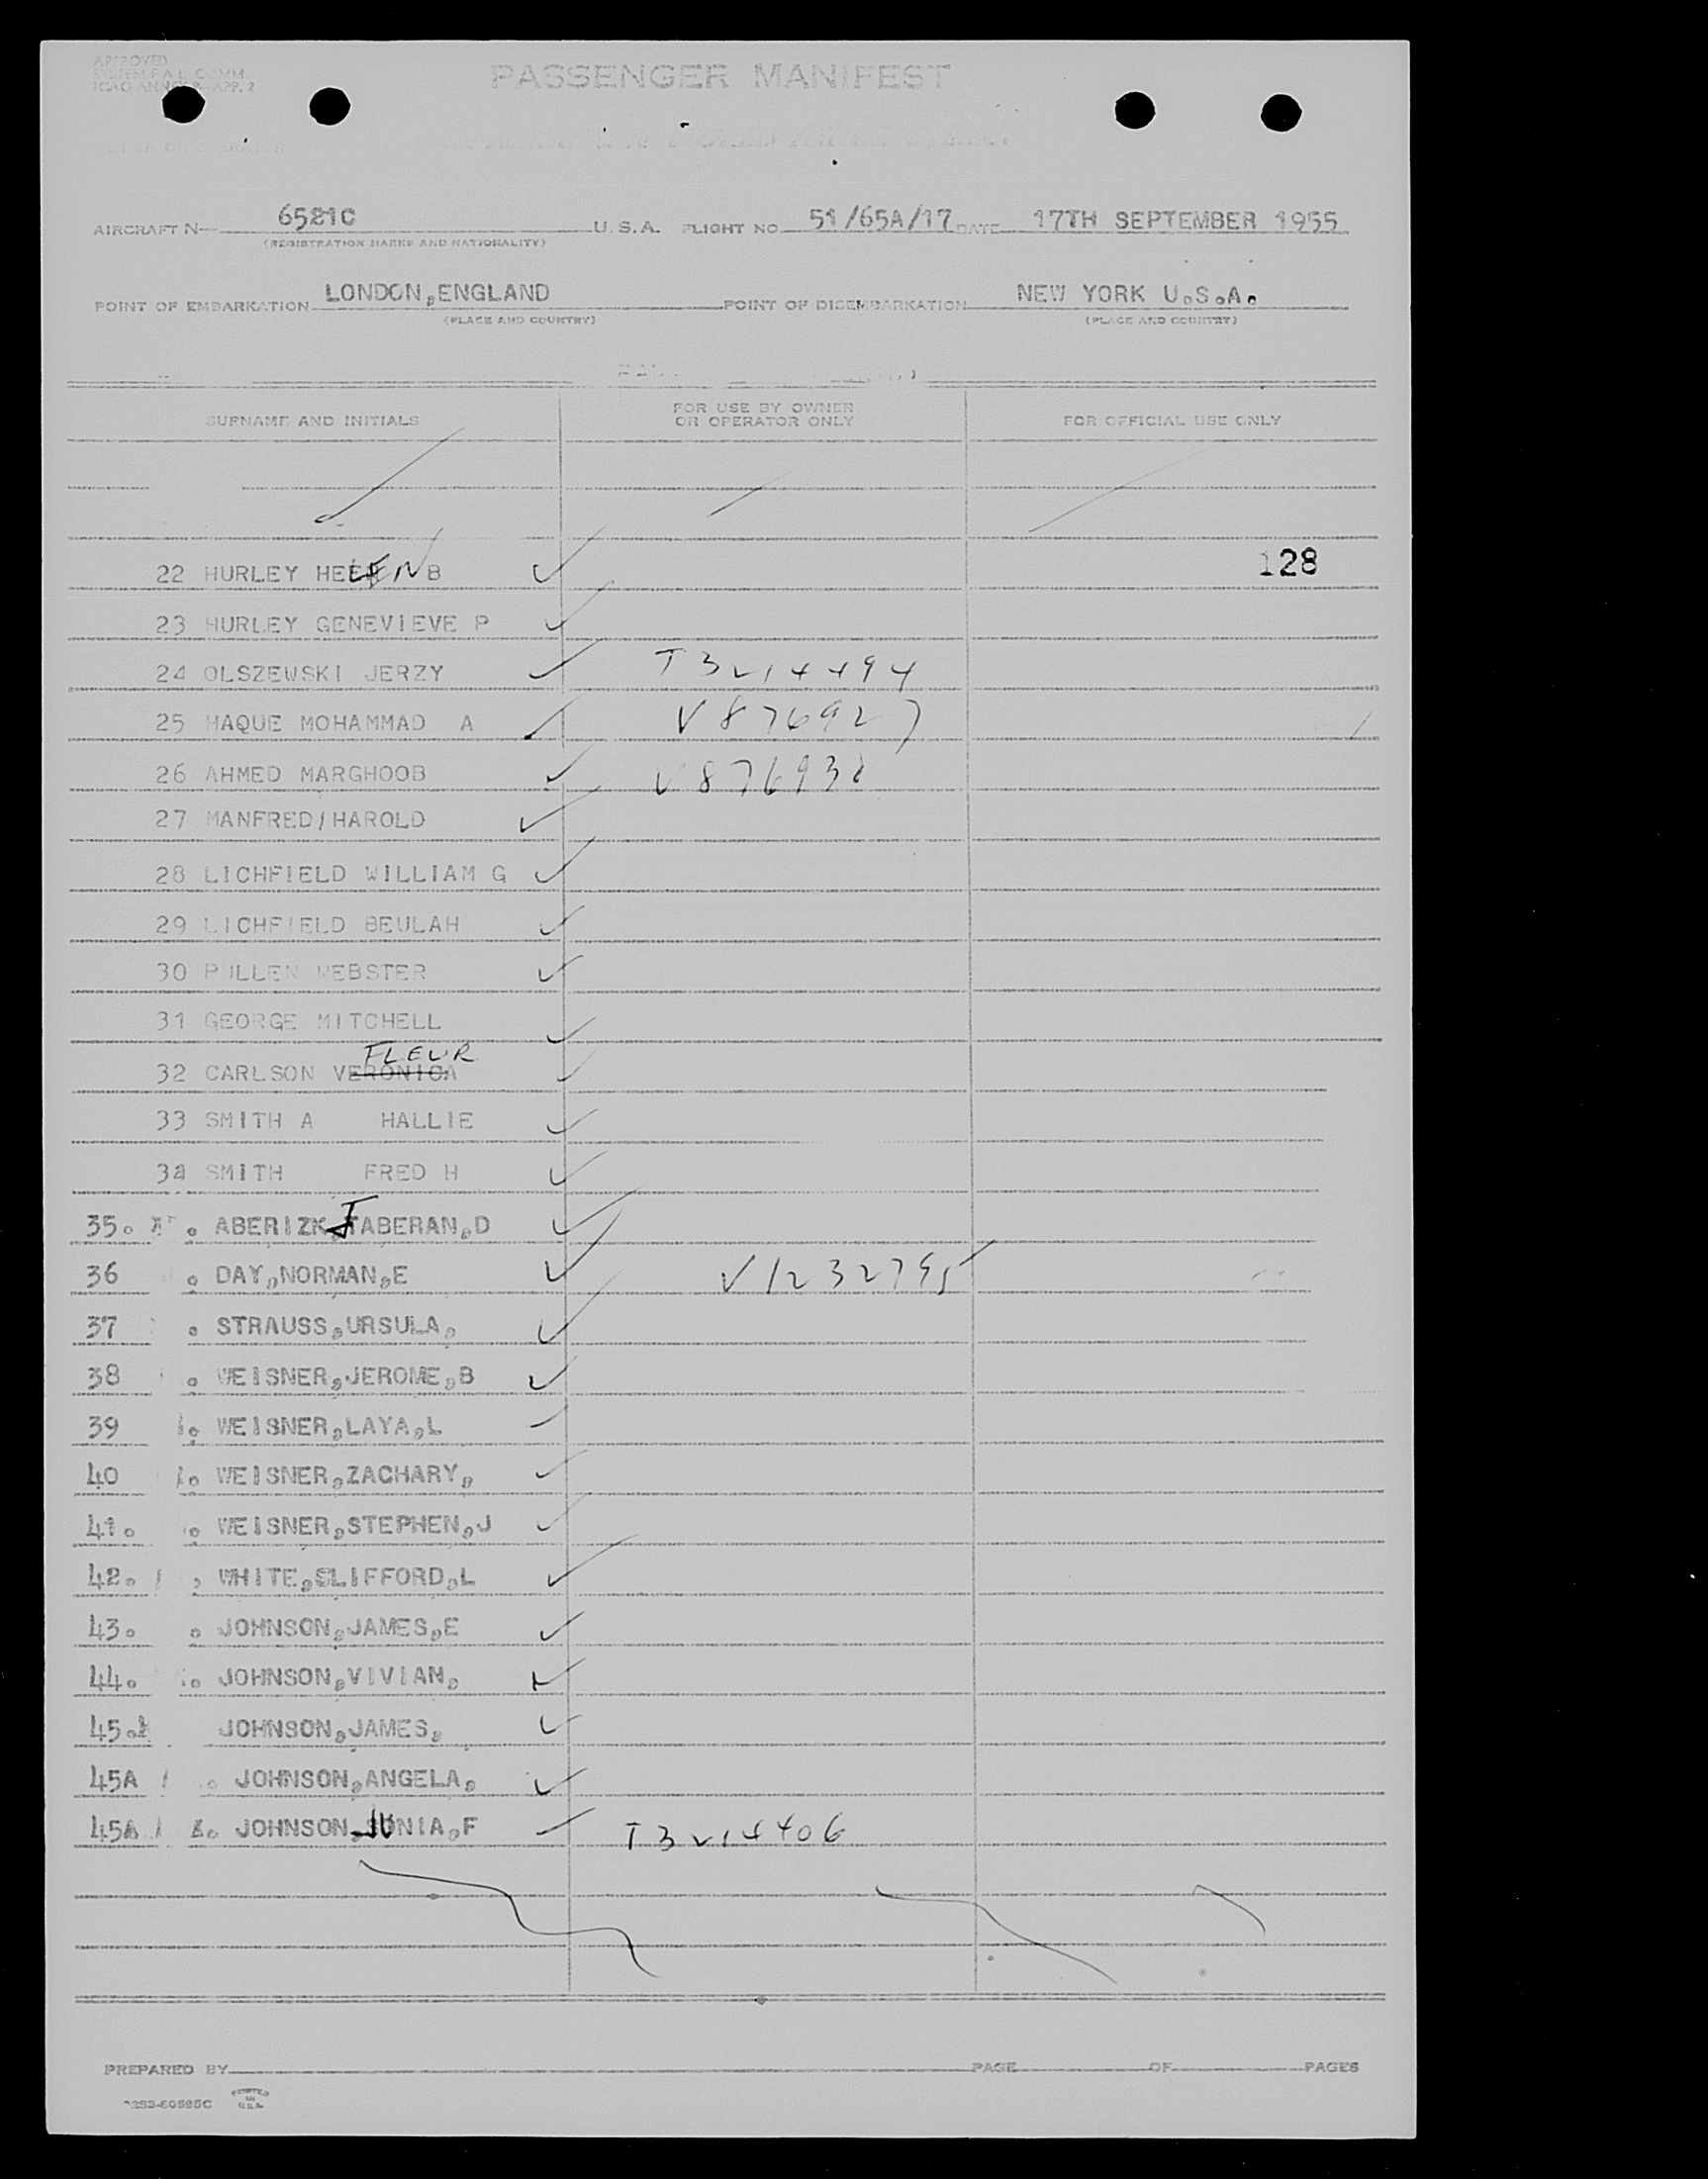 APPROVED
SYSTEM F.A.L. COMM.
ICAO ANNEX 9-APP. 2
PASSENGER MANIFEST
AIRCRAFT N— 6521C U.S.A. FLIGHT NO 51/65A/17 DATE 17TH SEPTEMBER 1955
(REGISTRATION MARKS AND NATIONALITY)
POINT OF EMBARKATION LONDON,ENGLAND POINT OF DISEMBARKATION NEW YORK U.S.A.
(PLACE AND COUNTRY) (PLACE AND COUNTRY)
SURNAME AND INITIALS FOR USE BY OWNER OR OPERATOR ONLY FOR OFFICIAL USE ONLY
22 HURLEY HELEN B 128
23 HURLEY GENEVIEVE P
24 OLSZEWSKI JERZY T3214494
25 HAQUE MOHAMMAD A V876927
26 AHMED MARGHOOB V876938
27 MANFRED/HAROLD
28 LICHFIELD WILLIAM G
29 LICHFIELD BEULAH
30 PULLEN WEBSTER
31 GEORGE MITCHELL
FLEUR
32 CARLSON VERONICA
33 SMITH A HALLIE
34 SMITH FRED H
35. ABERIZK,JABERAN,D
36 . DAY,NORMAN,E V1232795
37 . STRAUSS,URSULA,
38 . WEISNER,JEROME,B
39 . WEISNER,LAYA,L
40 . WEISNER,ZACHARY,
41. . WEISNER,STEPHEN,J
42. WHITE,SLIFFORD,L
43. . JOHNSON,JAMES,E
44. . JOHNSON,VIVIAN,
45. JOHNSON,JAMES,
45A . JOHNSON,ANGELA,
45A . JOHNSON,JUNIA,F T3214406
PREPARED BY PAGE OF PAGES
PRINTED IN U.S.A.